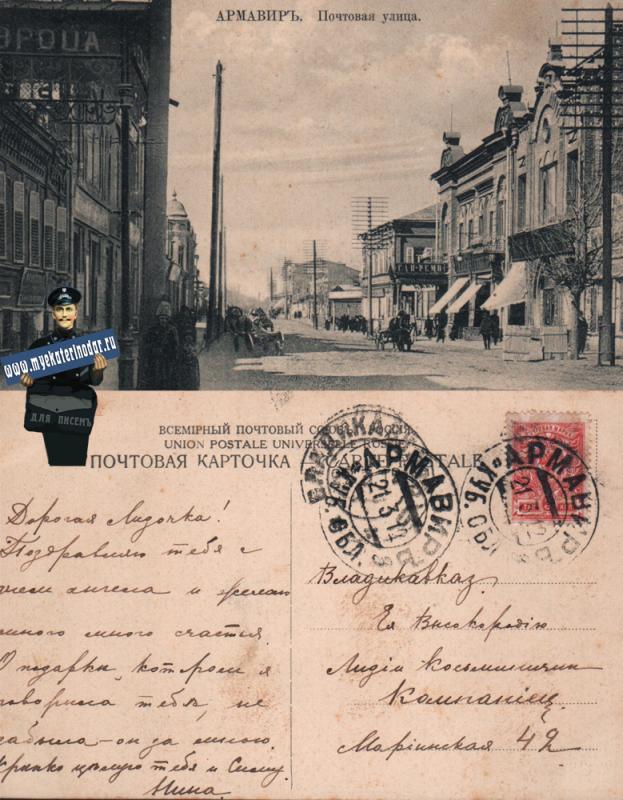 АРМАВИРЪ. Почтовая улица.
РОЦА
www.myekaterinodar.ru
ДЛЯ ПИСЕМЪ
ВСЕМІРНЫЙ ПОЧТОВЫЙ СОЮЗЪ. РОССІЯ
UNION POSTALE UNIVERSELLE RUSSIE
ПОЧТОВАЯ КАРТОЧКА CARTE POSTALE
АРМАВИРЪ
КУБ. ОБЛ.
АРМАВИРЪ
КУБ. ОБЛ.
Дорогая Лидочка!
Поздравляю тебя с
днем ангела и желаю
много много счастья.
О подарки, котором я
говорила тебя, не
забыла - он за мною.
Крепко целую тебя и Симу.
Нина.
Владикавказ.
Ея Высокородію
Лидіи Косьминичны
Компаніец.
Маріинская 42